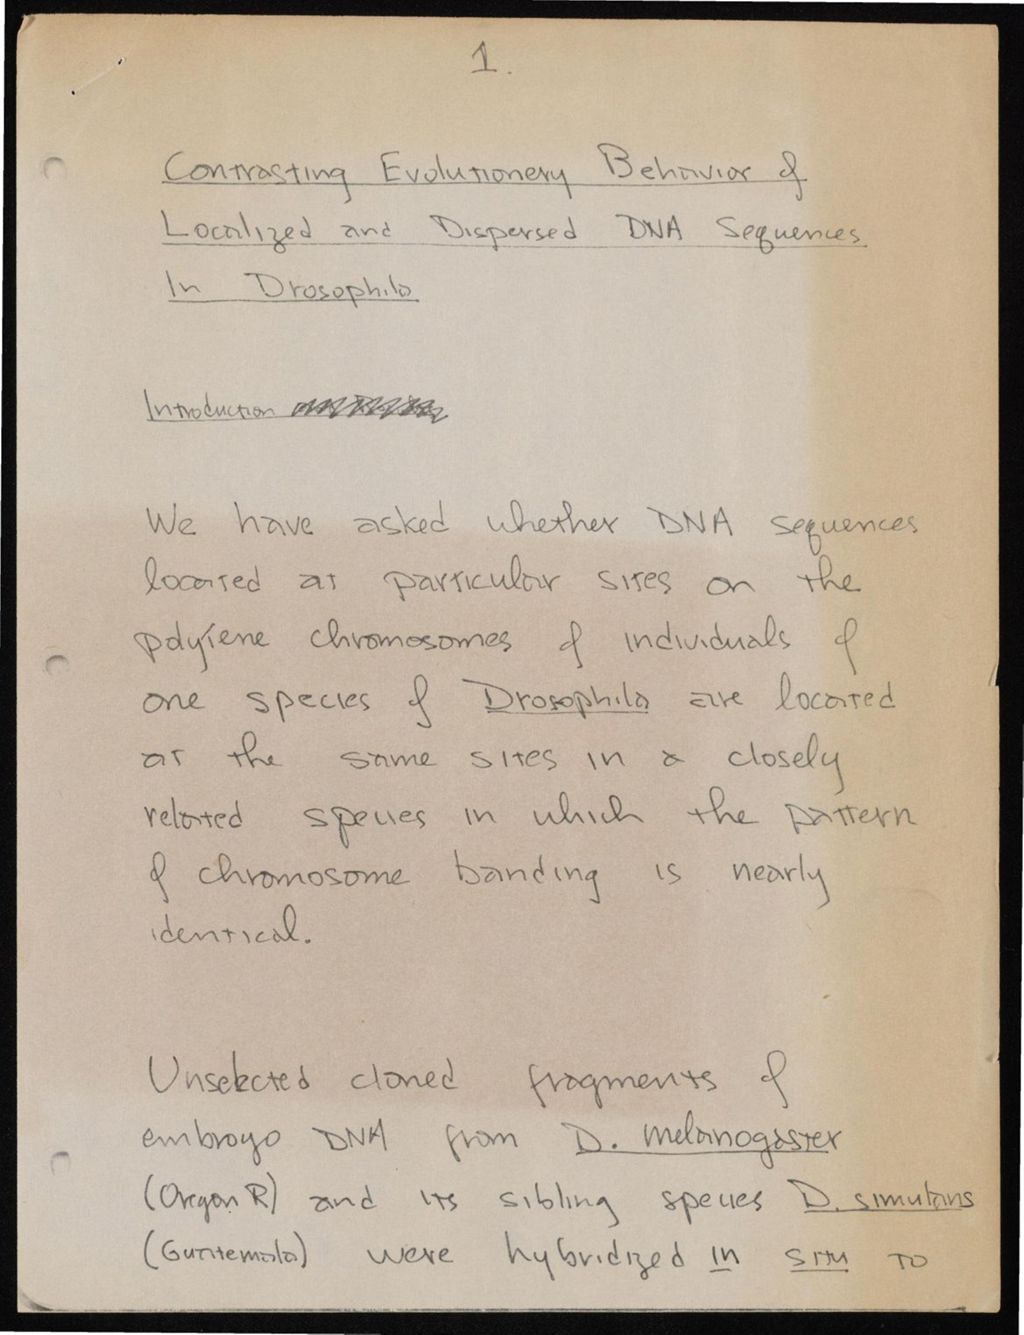 1.
Contrasting Evolutionery Behavior of
Localized and Dispersed DNA Sequences
In Drosophila
Introduction
We have asked whether DNA sequences
located at particular sites on the
polytene chromosomes of individuals of
one species of Drosophila are located
at the same sites in a closely
related species in which the pattern
of chromosome banding is nearly
identical.
Unselected cloned fragments of
embroyo DNA from D. melanogaster
(Oregon R) and its sibling species D. simulans
(Guatemala) were hybridized in situ to